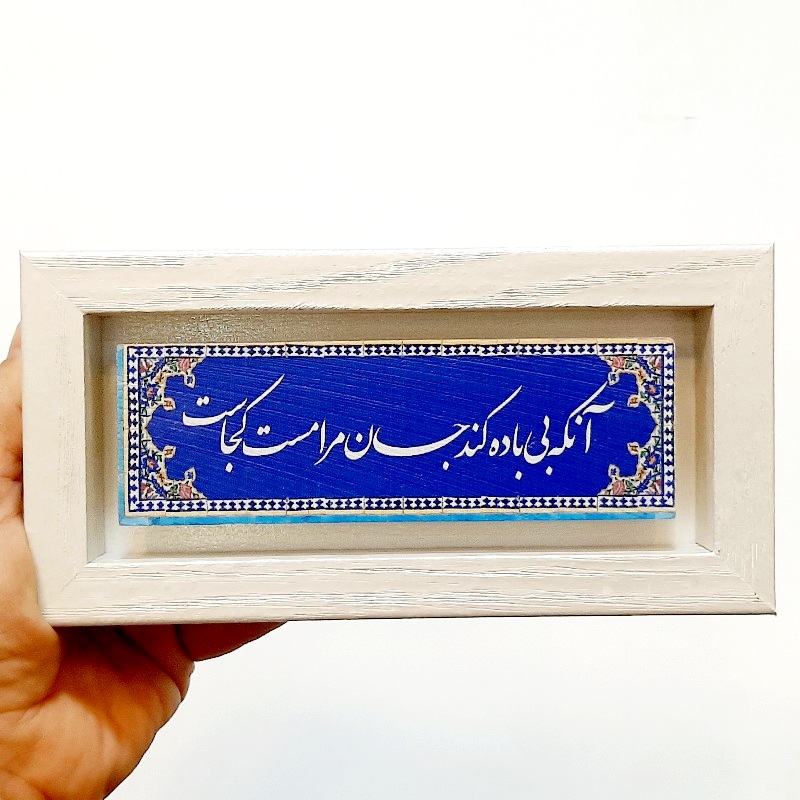 آنکه بی باده کند جان مرا مست کجاست